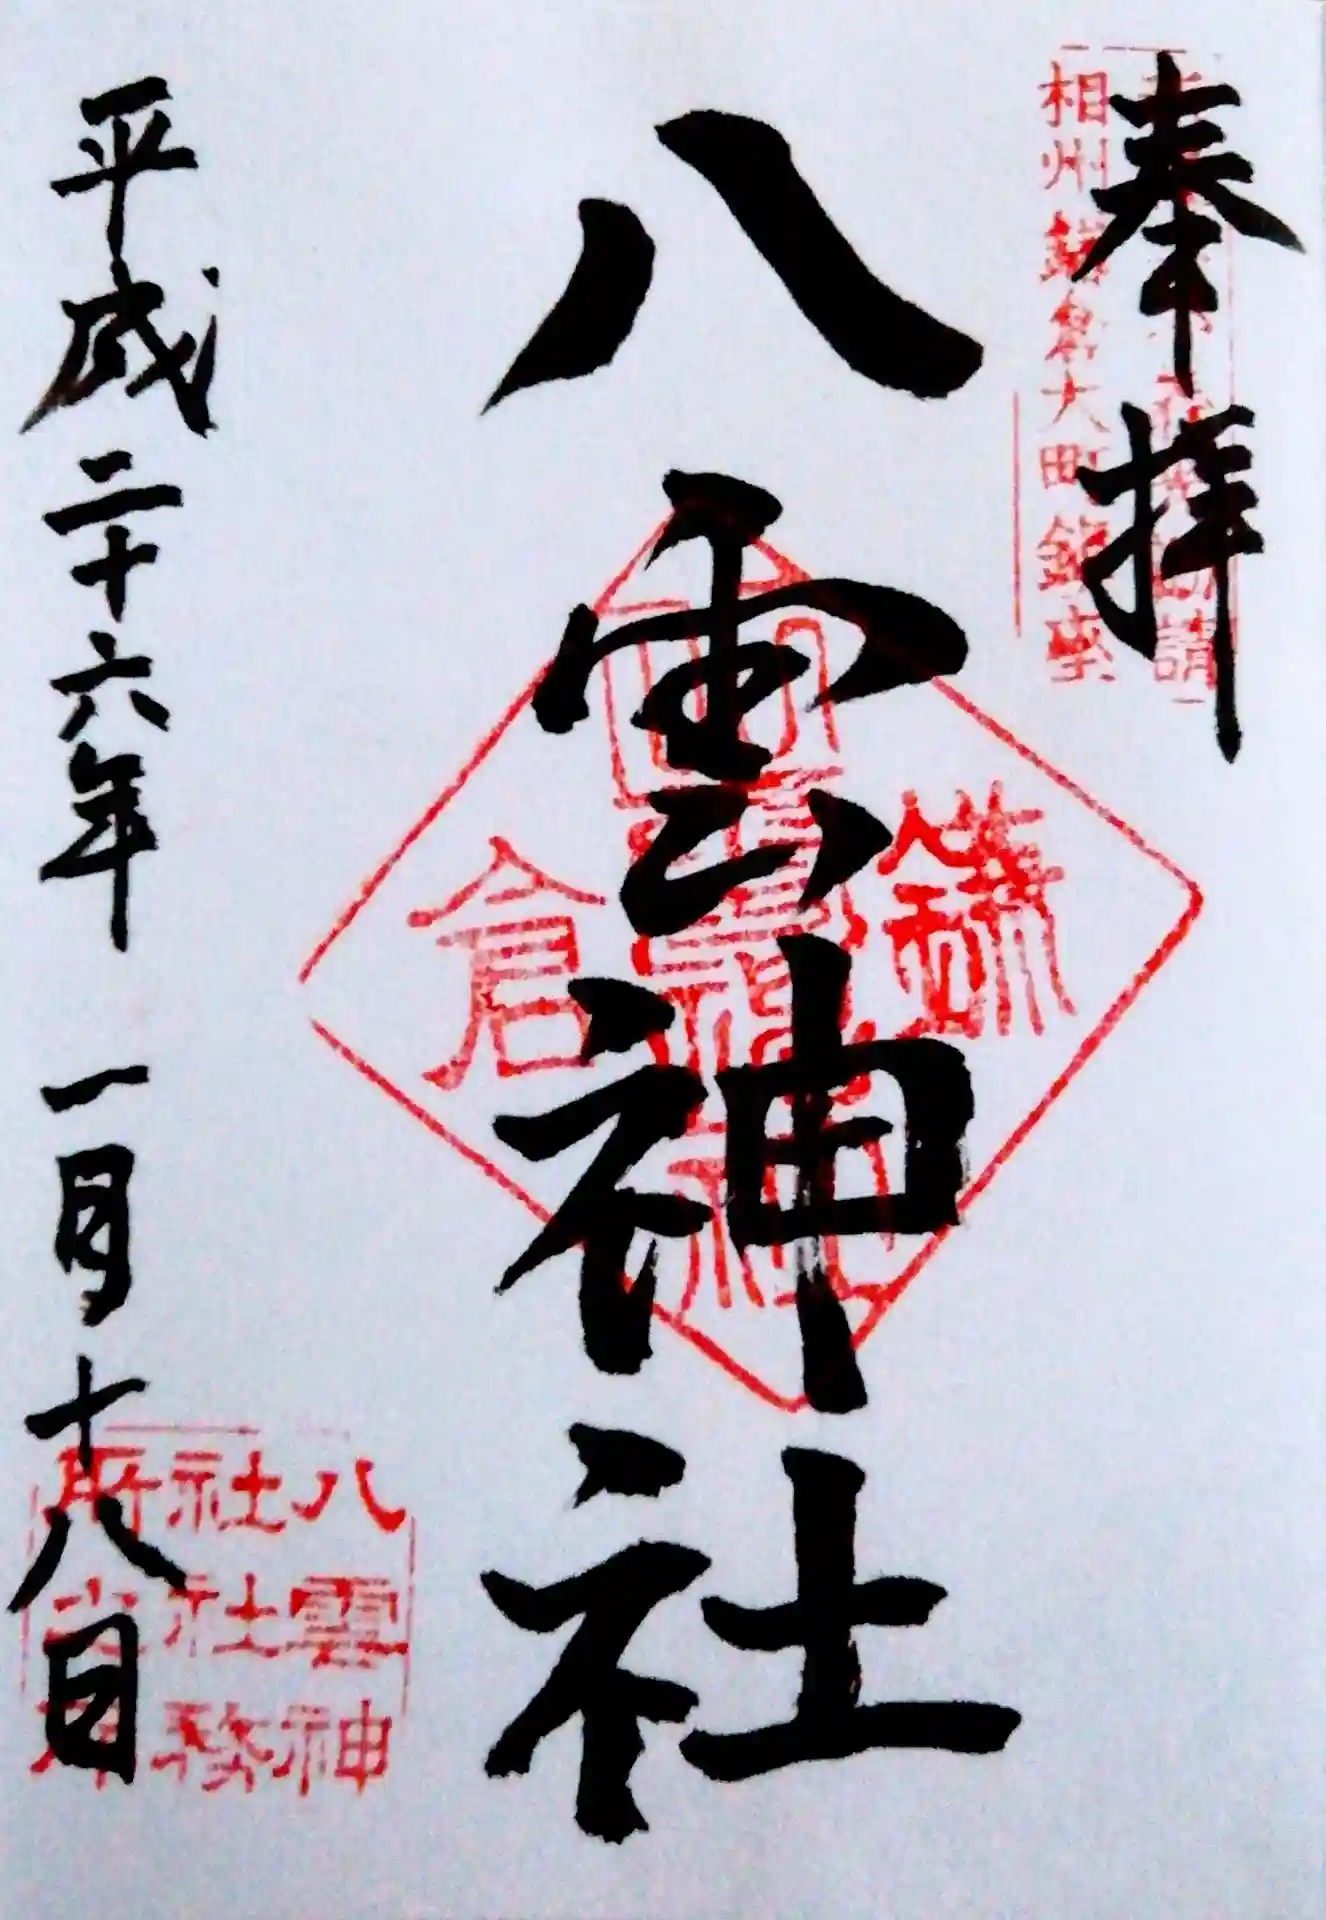 奉拝
相州鎌倉大町鎮座
八雲神社
鎌倉
平成二十六年 一月十八日
八雲神
社社務
所之印